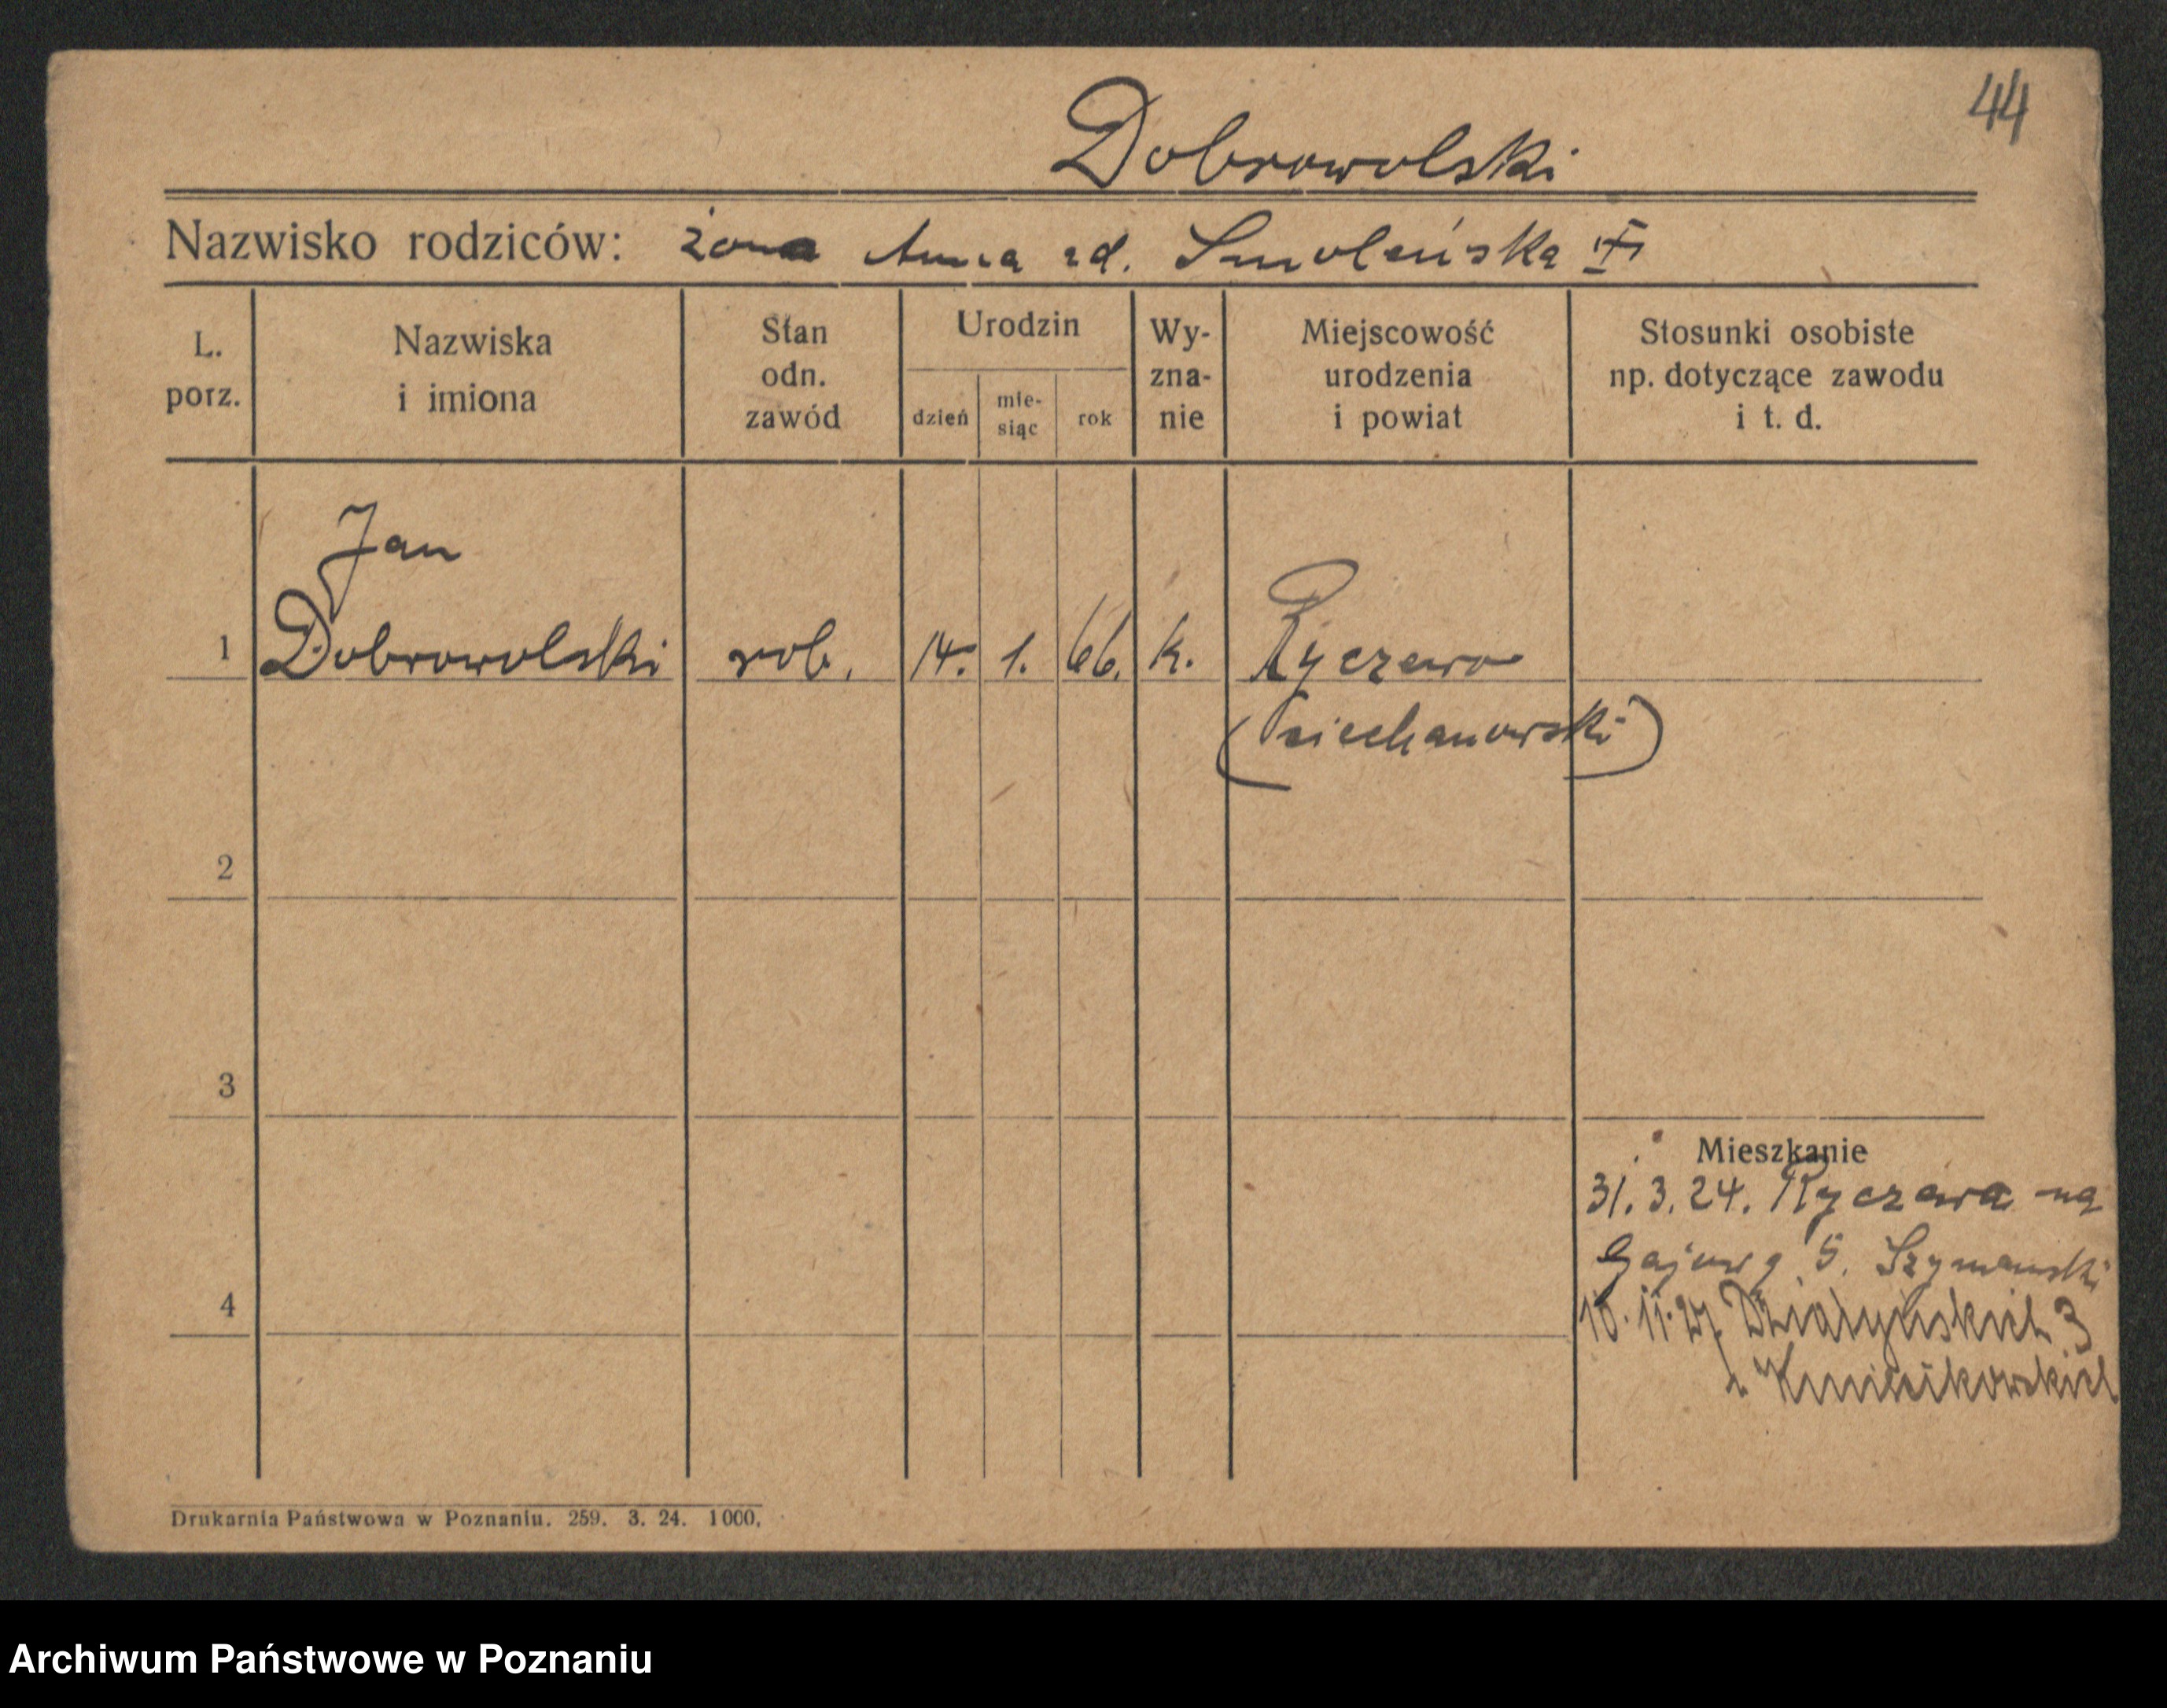 44
Dobrowolski
Nazwisko rodziców: żona Anna zd. Smoleńska
L. porz.
Nazwiska i imiona
Stan odn. zawód
Urodzin
dzień
mie-
siąc
rok
Wy-
zna-
nie
Miejscowość
urodzenia
i powiat
Stosunki osobiste
np. dotyczące zawodu
i t. d.
Jan
1 Dobrowolski rob. 14. 1. 66. k. Ryczewo
(Ciechanowski)
2
3
Mieszkanie
31. 3. 24. Ryczewa na
Gajową 5. Szymański
4
10. 11. 27. Działyńskich 3
Drukarnia Państwowa w Poznaniu. 259. 3. 24. 1000.
Archiwum Państwowe w Poznaniu